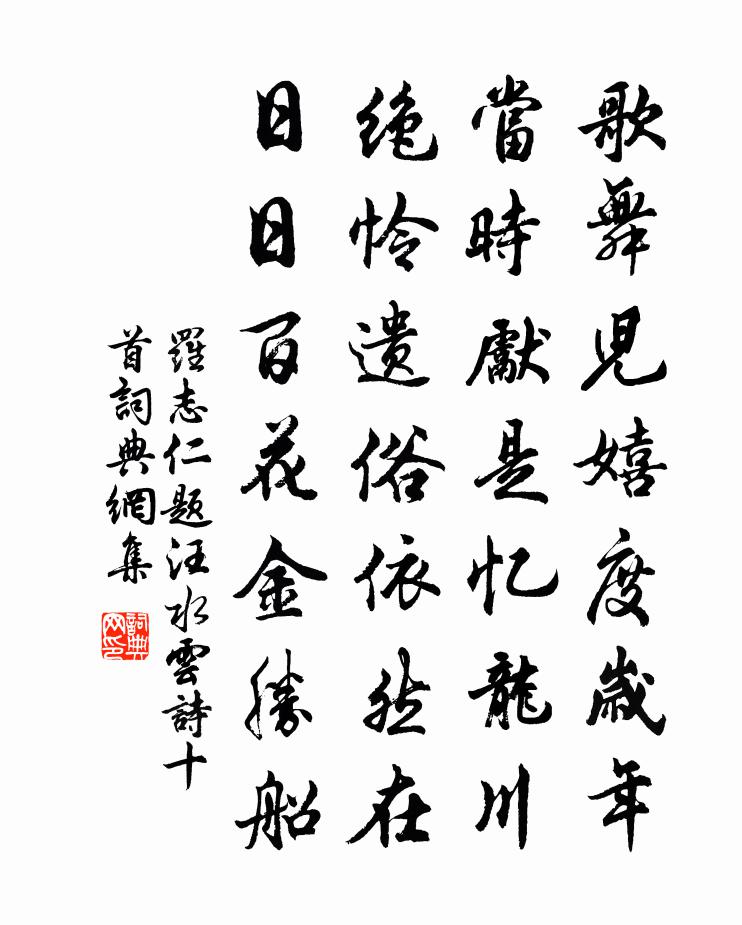 歌舞児嬉度歲年
當時獻是忆龍川
绝怜遗俗依然在
日日百花金勝船
羅志仁题汪水雲詩十
首詞典網集
詞典网印